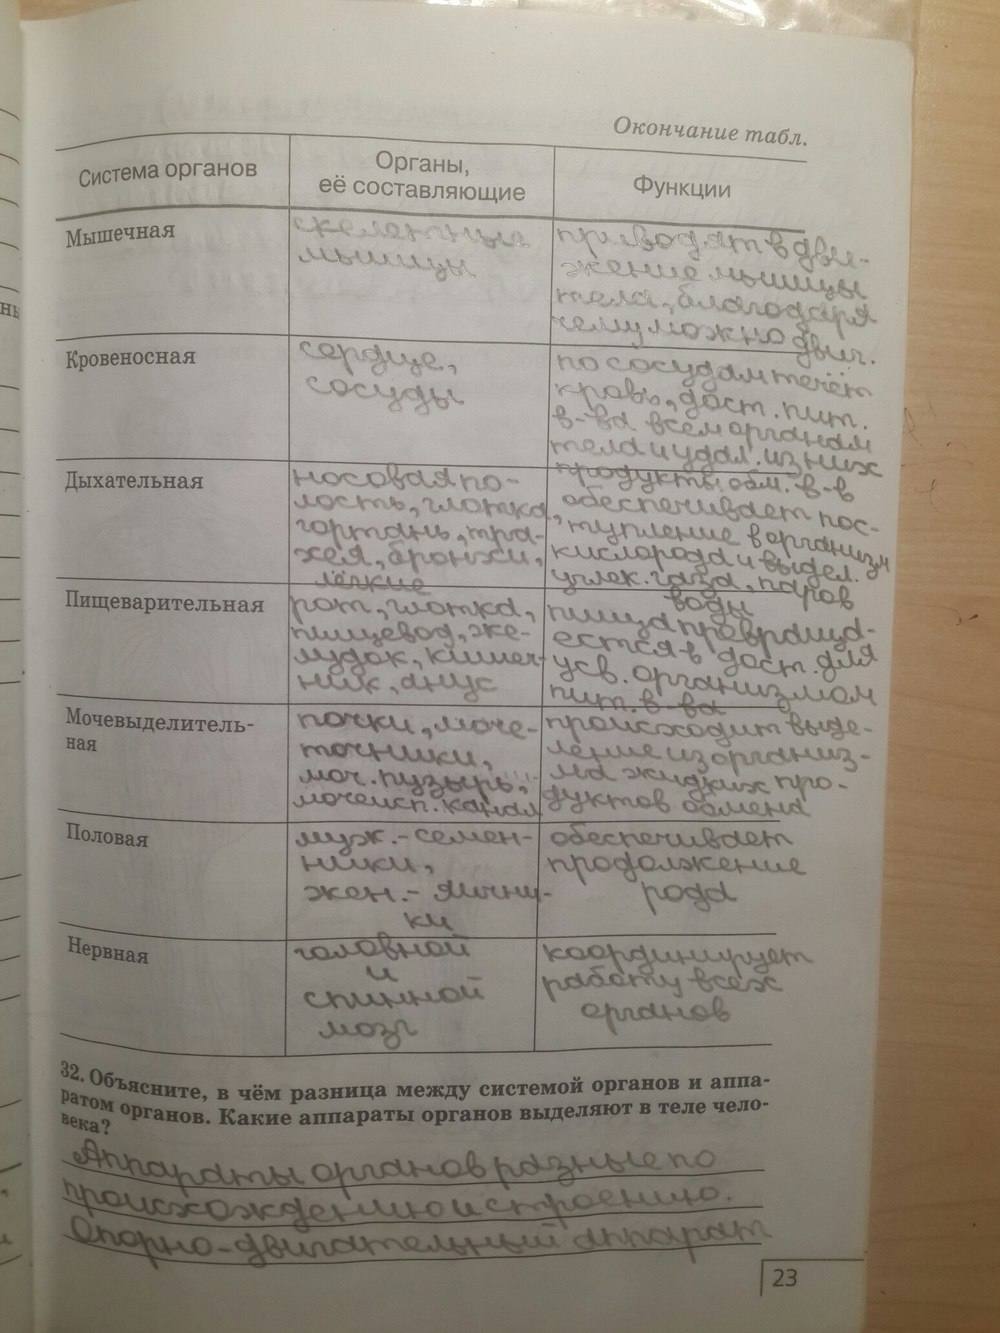 Окончание табл.
Система органов
Органы,
её составляющие
Функции
Мышечная
скелетные
мышцы
приводят в дви-
жение мышцы
тела, благодаря
чему можно двиг.
Кровеносная
сердце,
сосуды
по сосудам течёт
кровь, дост. пит.
в-ва всем органам
тела и удал. из них
продукты обм. в-в
Дыхательная
носовая по-
лость, глотка,
гортань, тра-
хея, бронхи,
лёгкие
обеспечивает пос-
тупление в организм
кислорода и выдел.
углек. газа, паров
воды
Пищеварительная
рот, глотка,
пищевод, же-
лудок, кишеч-
ник, анус
пища превраща-
ется в дост. для
усв. организмом
пит. в-ва
Мочевыделитель-
ная
почки, моче-
точники,
моч. пузырь,
мочеисп. канал
происходит выде-
ление из организ-
ма жидких про-
дуктов обмена
Половая
муж.- семен-
ники,
жен.- яични-
ки
обеспечивает
продолжение
рода
Нервная
головной
и
спинной
мозг
координирует
работу всех
органов
32. Объясните, в чём разница между системой органов и аппа-
ратом органов. Какие аппараты органов выделяют в теле чело-
века?
Аппараты органов разные по
происхождению и строению.
Опорно-двигательный аппарат
23